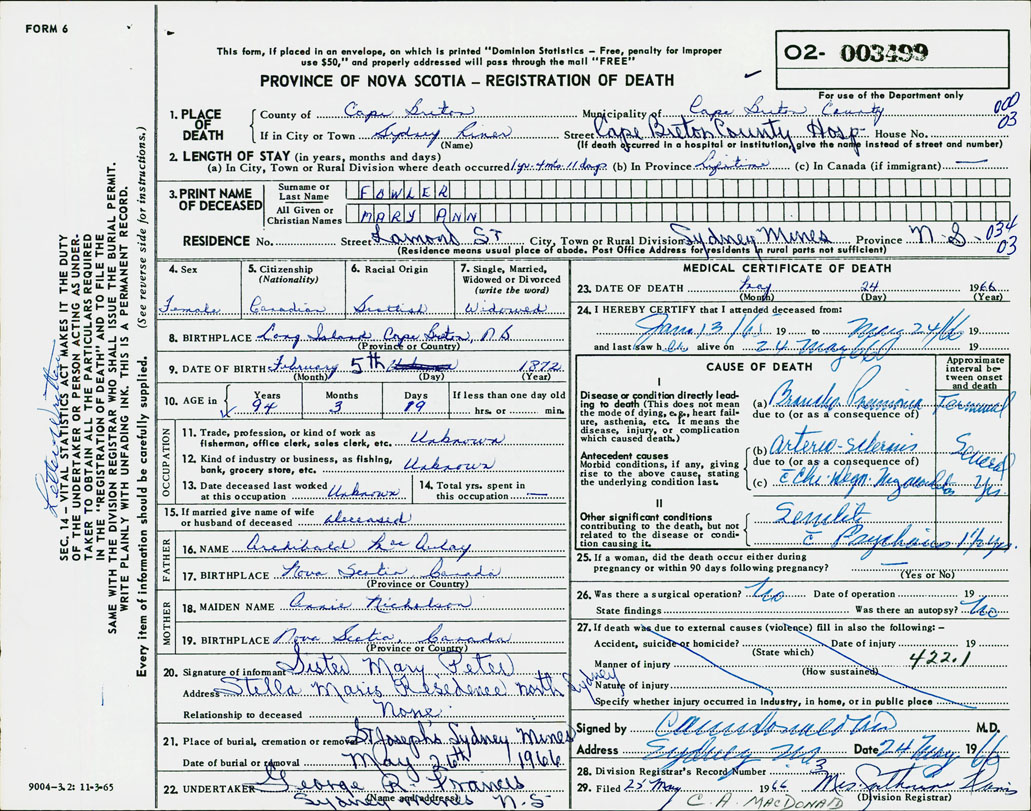 FORM 6
This form, if placed in an envelope, on which is printed "Dominion Statistics – Free, penalty for improper
use $50," and properly addressed will pass through the mail "FREE"
PROVINCE OF NOVA SCOTIA – REGISTRATION OF DEATH
02- 003499
For use of the Department only
1. PLACE OF DEATH
County of Cape Breton Municipality of Cape Breton County 000
If in City or Town Sydney River Street Cape Breton County Hosp House No. 03
(Name) (If death occurred in a hospital or institution, give the name instead of street and number)
2. LENGTH OF STAY (in years, months and days)
(a) In City, Town or Rural Division where death occurred 1 yr. 4 mos 11 days (b) In Province Lifetime (c) In Canada (if immigrant) —
3. PRINT NAME OF DECEASED
Surname or Last Name FOWLER
All Given or Christian Names MARY ANN
RESIDENCE No. Street Lamont ST City, Town or Rural Division Sydney Mines Province N.S 034
03
(Residence means usual place of abode. Post Office Address for residents in rural parts not sufficient)
4. Sex
Female
5. Citizenship
(Nationality)
Canadian
6. Racial Origin
Scottish
7. Single, Married,
Widowed or Divorced
(write the word)
Widowed
8. BIRTHPLACE Long Island Cape Breton, N.S
(Province or Country)
9. DATE OF BIRTH February 5th 1872
(Month) (Day) (Year)
10. AGE in Years Months Days If less than one day old
94 3 19 hrs. or min.
OCCUPATION
11. Trade, profession, or kind of work as
fisherman, office clerk, sales clerk, etc. Unknown
12. Kind of industry or business, as fishing,
bank, grocery store, etc. Unknown
13. Date deceased last worked
at this occupation Unknown
14. Total yrs. spent in
this occupation —
15. If married give name of wife
or husband of deceased deceased
FATHER
16. NAME Archibald
17. BIRTHPLACE Nova Scotia, Canada
(Province or Country)
MOTHER
18. MAIDEN NAME Annie Nicholson
19. BIRTHPLACE Nova Scotia, Canada
(Province or Country)
20. Signature of informant Sister Mary Peter
Address Stella Maris Residence North Sydney
Relationship to deceased None
21. Place of burial, cremation or removal St Joseph's Sydney Mines
Date of burial or removal May 26th 1966
22. UNDERTAKER George R. Francis
(Name and address)
Sydney Mines N.S
MEDICAL CERTIFICATE OF DEATH
23. DATE OF DEATH May 24 1966
(Month) (Day) (Year)
24. I HEREBY CERTIFY that I attended deceased from:
Jan 13/65 19 to May 24/66 19
and last saw h alive on 24 May 66 19
CAUSE OF DEATH
Approximate
interval between
onset
and death
I
Disease or condition directly leading
to death (This does not mean
the mode of dying, e.g., heart failure,
asthenia, etc. It means the
disease, injury, or complication
which caused death.)
(a) Pneumonia Terminal
due to (or as a consequence of)
Antecedent causes
Morbid conditions, if any, giving
rise to the above cause, stating
the underlying condition last.
(b) Arterio-sclerosis Several
due to (or as a consequence of)
(c) yrs.
II
Other significant conditions
contributing to the death, but not
related to the disease or condition
causing it.
Senility
c Psychosis 1½ yrs.
25. If a woman, did the death occur either during
pregnancy or within 90 days following pregnancy? —
(Yes or No)
26. Was there a surgical operation? No Date of operation 19
State findings Was there an autopsy? No
27. If death was due to external causes (violence) fill in also the following: –
Accident, suicide or homicide? Date of injury 19
(State which)
Manner of injury 422.1
(How sustained)
Nature of injury
Specify whether injury occurred in industry, in home, or in public place
Signed by M.D.
Address Sydney Date 24 May 1966
28. Division Registrar's Record Number 3
29. Filed 25 May 1966 Mrs
(Division Registrar)
C. A. MACDONALD
SEC. 14 – VITAL STATISTICS ACT MAKES IT THE DUTY
OF THE UNDERTAKER OR PERSON ACTING AS UNDERTAKER
TO OBTAIN ALL THE PARTICULARS REQUIRED
IN THE "REGISTRATION OF DEATH" AND TO FILE THE
SAME WITH THE DIVISION REGISTRAR WHO SHALL ISSUE THE BURIAL PERMIT.
WRITE PLAINLY WITH UNFADING INK. THIS IS A PERMANENT RECORD.
Every item of information should be carefully supplied. (See reverse side for instructions.)
9004-3.2: 11-3-65